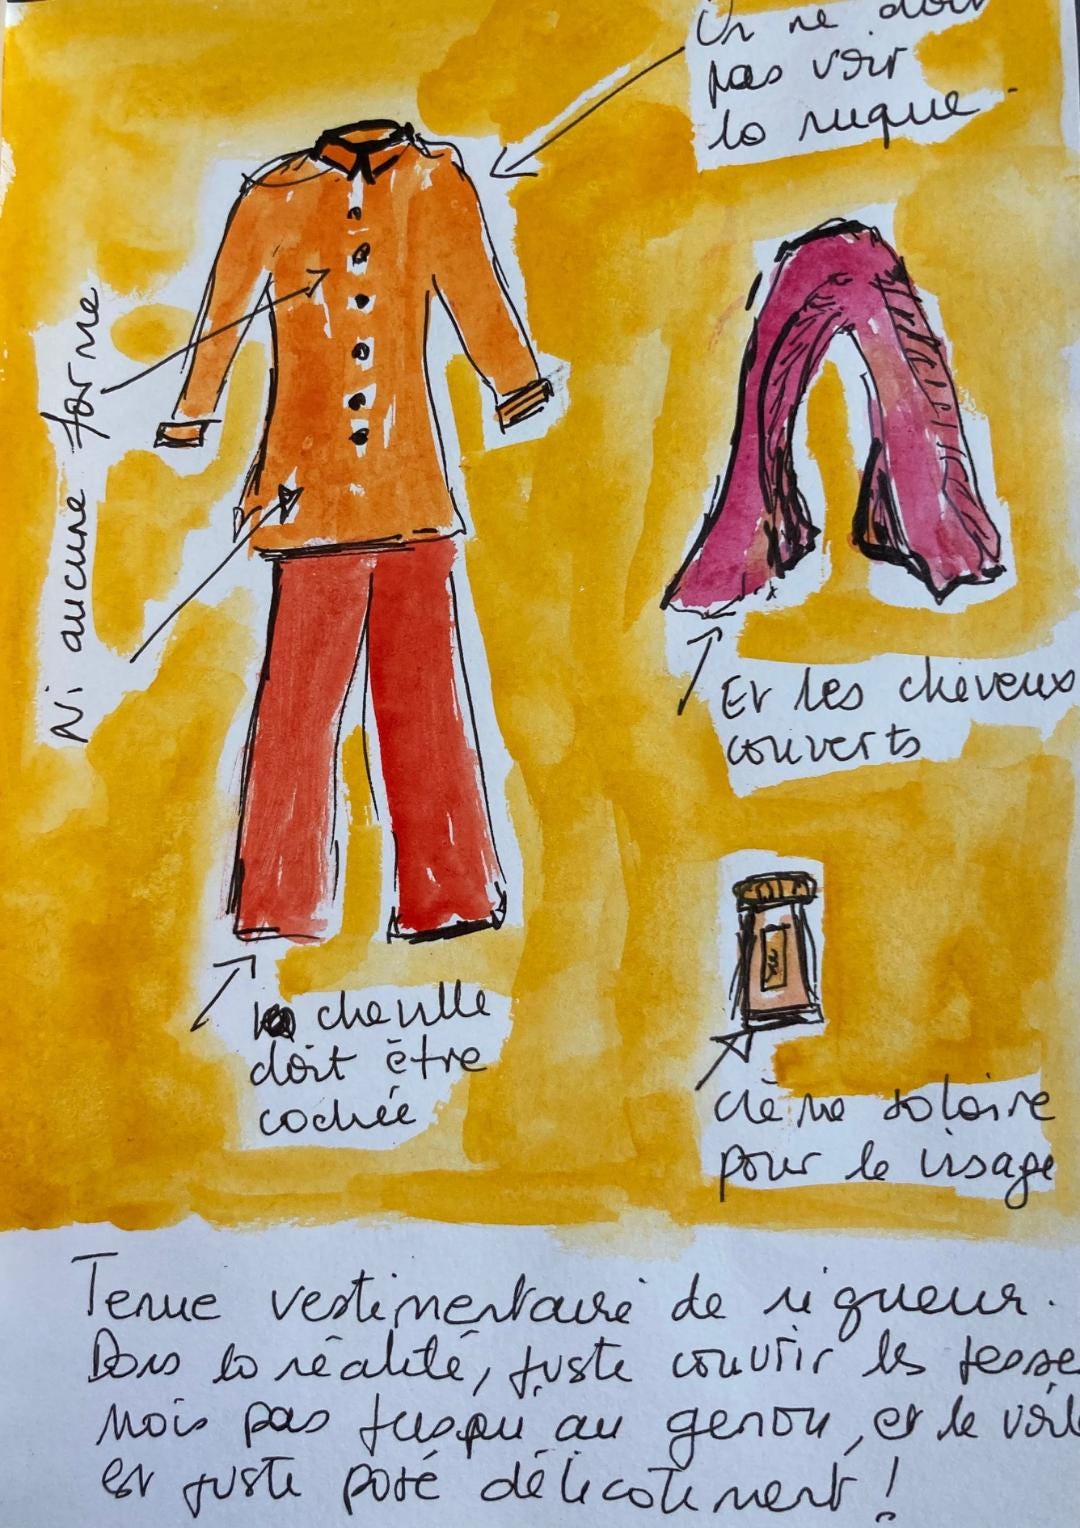 On ne doit
pas voir
la nuque.
Ni aucune forme
Et les cheveux
couverts
la cheville
doit être
cachée
Crème solaire
pour le visage
Tenue vestimentaire de rigueur.
Dans la réalité, juste couvrir les fesses
mais pas jusqu'au genou, et le voile
est juste posé délicatement !